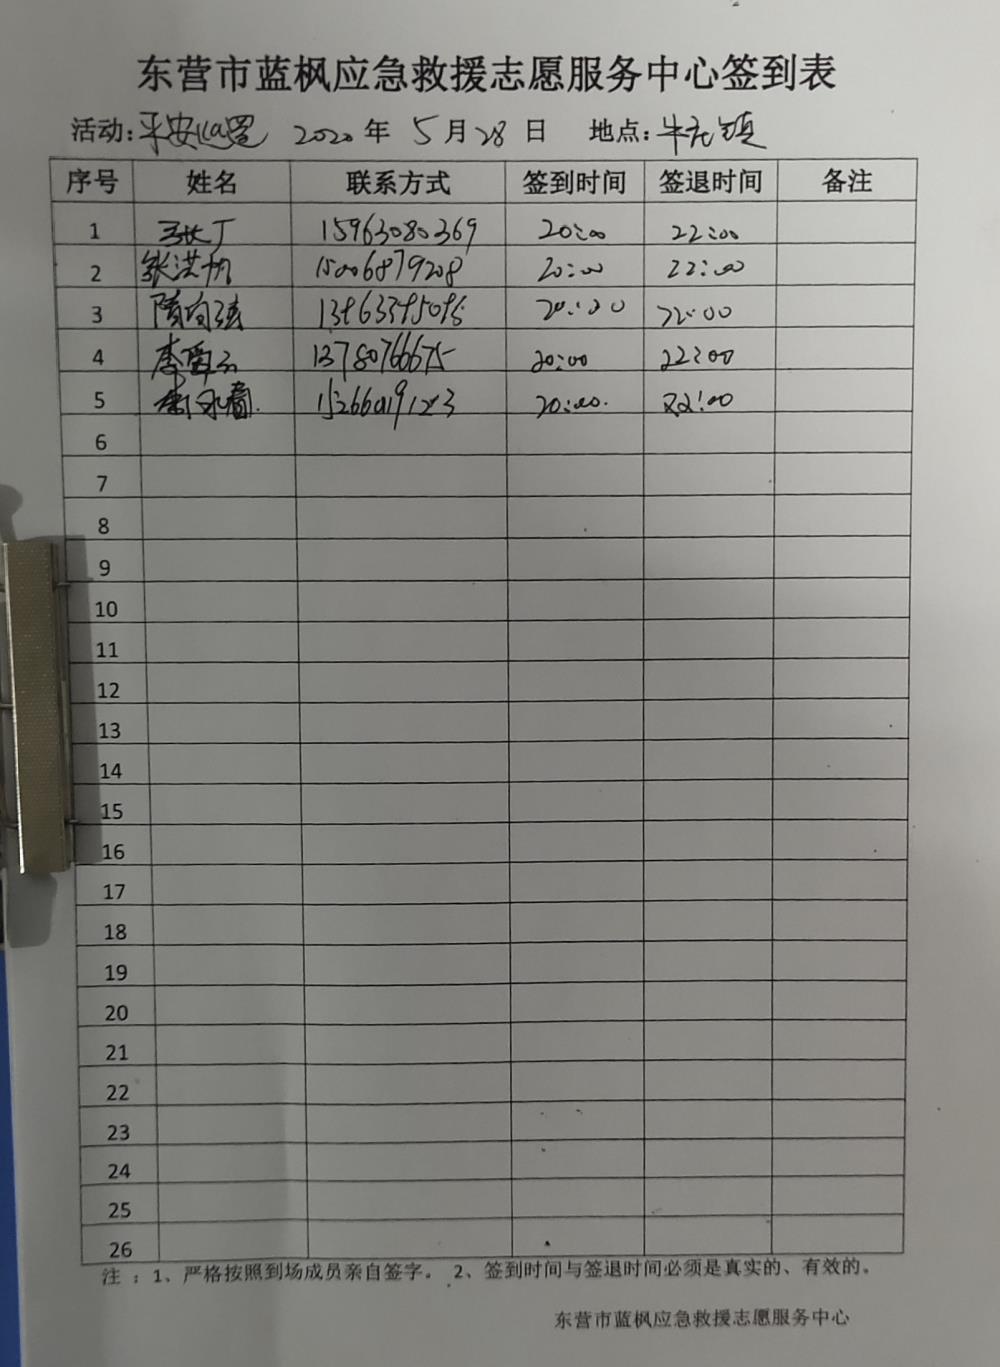 东营市蓝枫应急救援志愿服务中心签到表
活动:平安巡逻 2020年 5月28日 地点:牛庄镇
序号 姓名 联系方式 签到时间 签退时间 备注
1 15963080369 20:00 22:00
2 张洪 15006879208 20:00 22:00
3 隋向 20:00 22:00
4 李 13780766675 20:00 22:00
5 永 15266019123 20:00. 22:00
6
7
8
9
10
11
12
13
14
15
16
17
18
19
20
21
22
23
24
25
26
注 :1、严格按照到场成员亲自签字。 2、签到时间与签退时间必须是真实的、有效的。
东营市蓝枫应急救援志愿服务中心